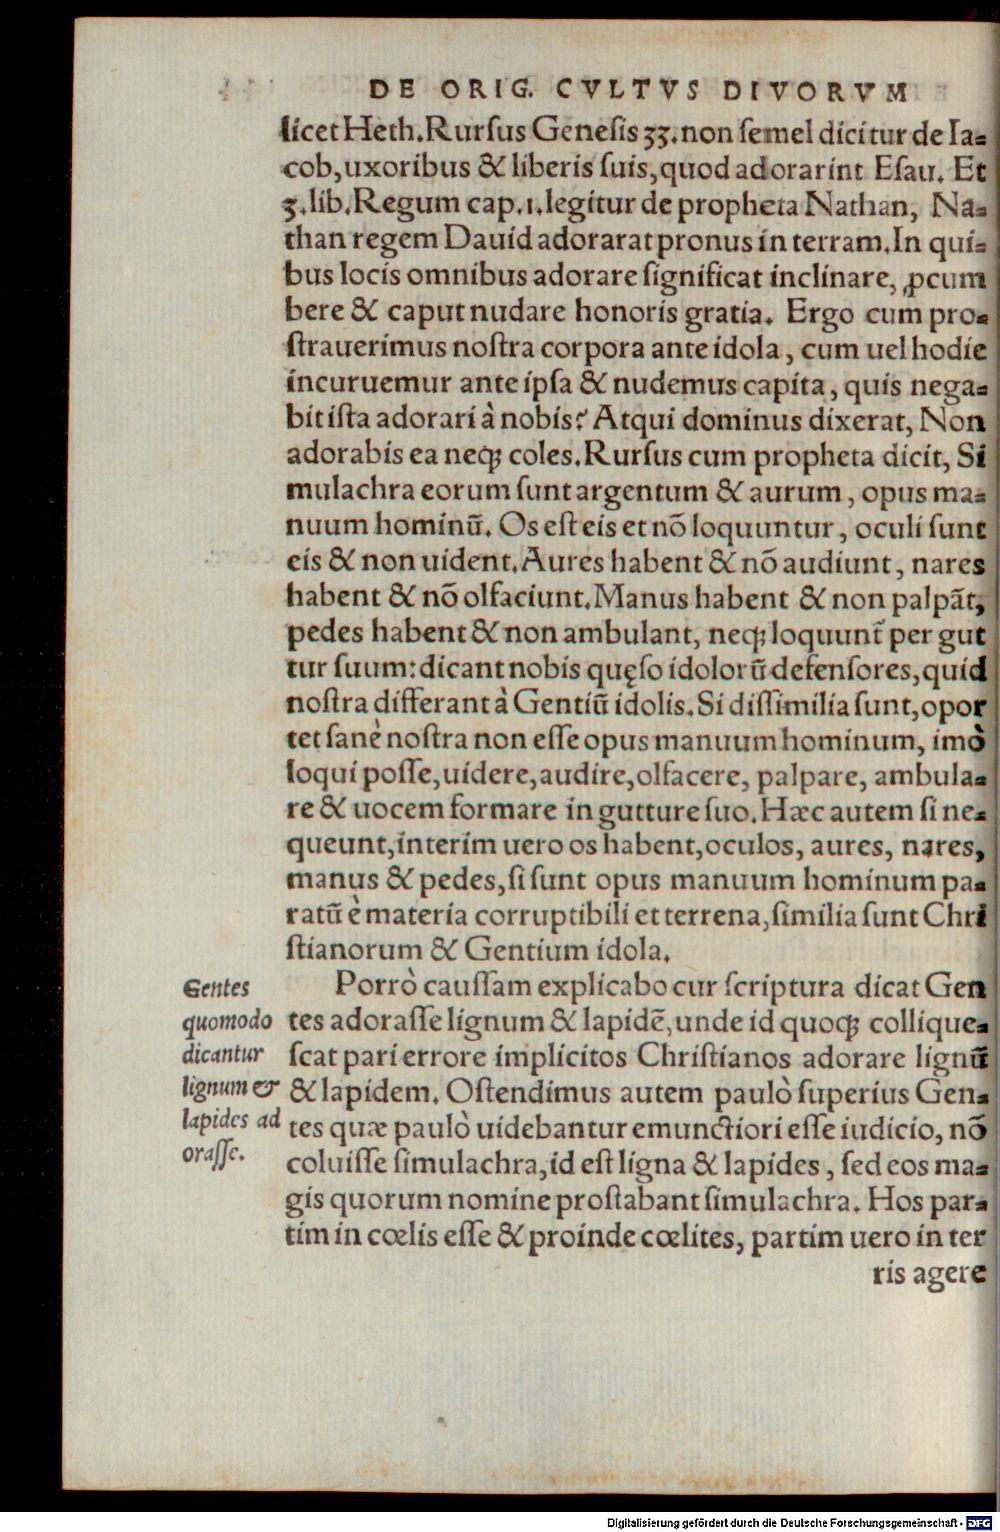 DE ORIG. CVLTVS DIVORVM
licet Heth. Rursus Genesis 33. non semel dicitur de Ia-
cob, uxoribus & liberis suis, quod adorarint Esau. Et
3. lib. Regum cap. 1. legitur de propheta Nathan, Na-
than regem Dauid adorarat pronus in terram. In qui-
bus locis omnibus adorare significat inclinare, ꝓcum
bere & caput nudare honoris gratia. Ergo cum pro-
strauerimus nostra corpora ante idola, cum uel hodie
incuruemur ante ipsa & nudemus capita, quis nega-
bit ista adorari à nobis? Atqui dominus dixerat, Non
adorabis ea neqꝫ coles. Rursus cum propheta dicit, Si
mulachra eorum sunt argentum & aurum, opus ma-
nuum hominū. Os est eis et nō loquuntur, oculi sunt
eis & non uident. Aures habent & nō audiunt, nares
habent & nō olfaciunt. Manus habent & non palpāt,
pedes habent & non ambulant, neqꝫ loquunt̃ per gut
tur suum: dicant nobis quęso idolorū defensores, quid
nostra differant à Gentiū idolis. Si dissimilia sunt, opor
tet sanè nostra non esse opus manuum hominum, imò
loqui posse, uidere, audire, olfacere, palpare, ambula-
re & uocem formare in gutture suo. Hæc autem si ne-
queunt, interim uero os habent, oculos, aures, nares,
manus & pedes, si sunt opus manuum hominum pa-
ratū è materia corruptibili et terrena, similia sunt Chri
stianorum & Gentium idola.
Porrò caussam explicabo cur scriptura dicat Gen
tes adorasse lignum & lapidē, unde id quoqꝫ collique-
scat pari errore implicitos Christianos adorare lignū
& lapidem. Ostendimus autem paulò superius Gen-
tes quæ paulò uidebantur emunctiori esse iudicio, nō
coluisse simulachra, id est ligna & lapides, sed eos ma-
gis quorum nomine prostabant simulachra. Hos par-
tim in cœlis esse & proinde cœlites, partim uero in ter
ris agere
Gentes
quomodo
dicantur
lignum &
lapides ad
orasse.
Digitalisierung gefördert durch die Deutsche Forschungsgemeinschaft - DFG